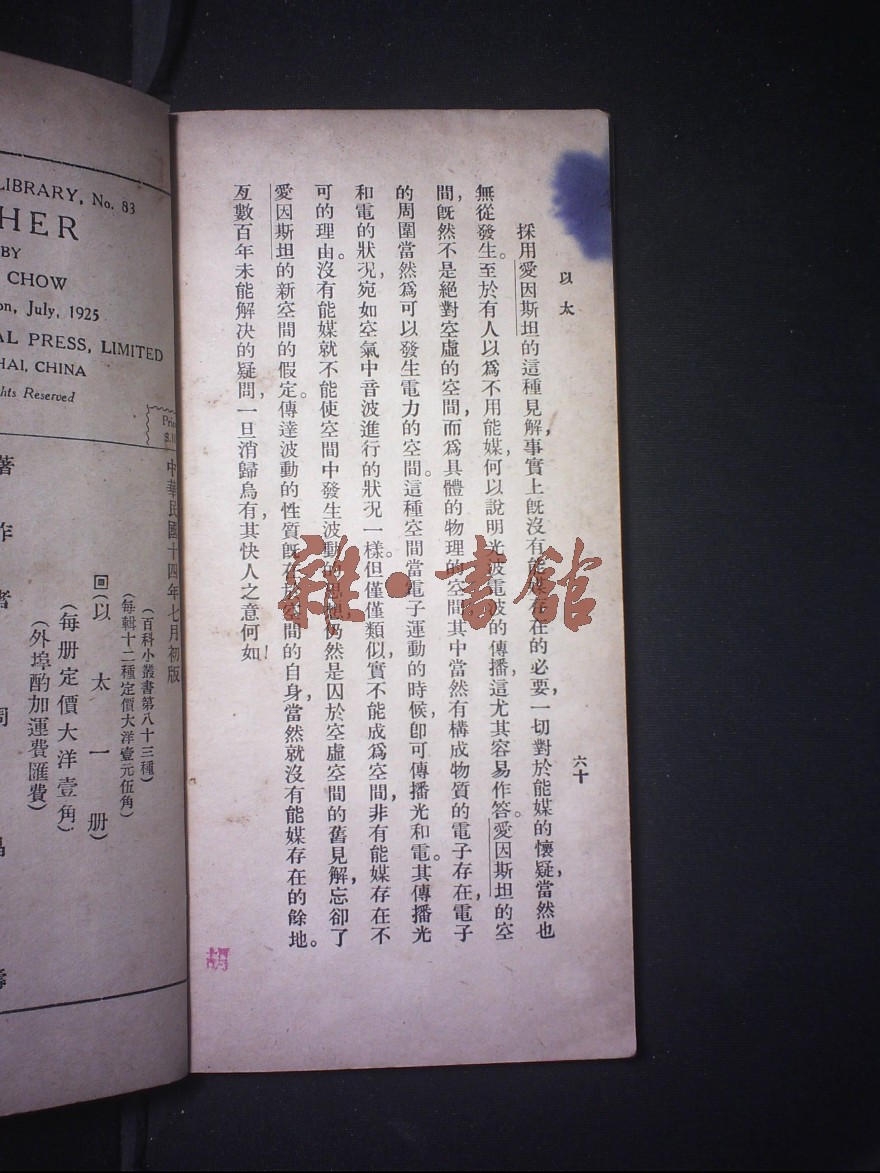 以太
六十
採用愛因斯坦的這種見解,事實上既沒有能媒存在的必要,一切對於能媒的懷疑,當然也
無從發生。至於有人以爲不用能媒,何以說明光波電波的傳播,這尤其容易作答。愛因斯坦的空
間,既然不是絕對空虛的空間,而爲具體的物理的空間,其中當然有構成物質的電子存在,電子
的周圍當然爲可以發生電力的空間。這種空間當電子運動的時候,卽可傳播光和電。其傳播光
和電的狀况,宛如空氣中音波進行的狀况一樣。但僅僅類似,實不能成爲空間,非有能媒存在不
可的理由。沒有能媒就不能使空間中發生波動的思想,仍然是囚於空虛空間的舊見解,忘卻了
愛因斯坦的新空間的假定。傳達波動的性質既在於空間的自身,當然就沒有能媒存在的餘地。
亙數百年未能解決的疑問,一旦消歸烏有,其快人之意何如!
雜·書館
LIBRARY, No. 83
HER
BY
CHOW
on, July, 1925
AL PRESS, LIMITED
HAI, CHINA
hts Reserved
中華民國十四年七月初版
(百科小叢書第八十三種)
(每輯十二種定價大洋壹元伍角)
回(以太一册)
(每册定價大洋壹角)
(外埠酌加運費匯費)
著作者